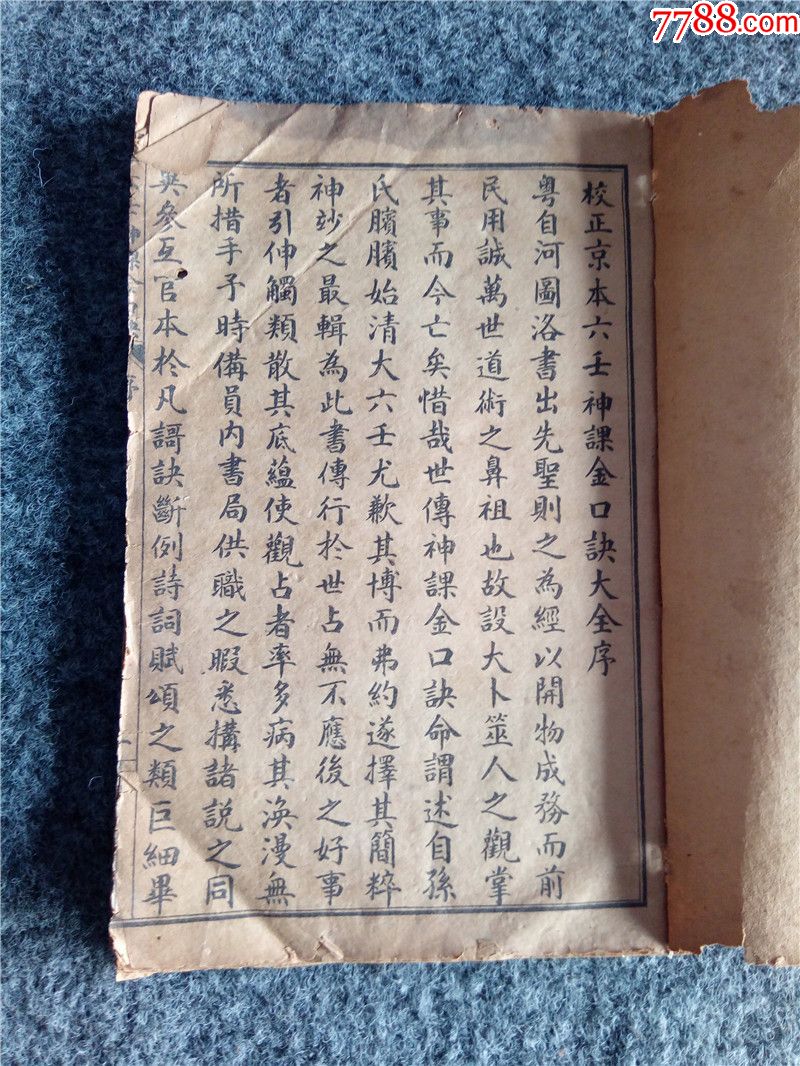 7788.com
校正京本六壬神課金口訣大全序
粤自河圖洛書出先聖則之為經以開物成務而前
民用誠萬世道術之鼻祖也故設大卜筮人之觀掌
其事而今亡矣惜哉世傳神課金口訣命謂述自孫
氏臏臏始清大六壬尤歉其博而弗約遂擇其簡粹
神玅之最輯為此書傳行於世占無不應後之好事
者引伸觸類散其底蘊使觀占者率多病其渙漫無
所措手予時備員内書局供職之暇悉搆諸説之同
異參互官本於凡謌訣斷例詩詞賦頌之類巨細畢
神課金口訣 序